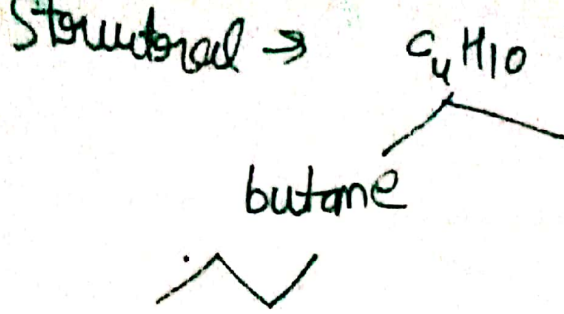 Structural → C4H10
butane